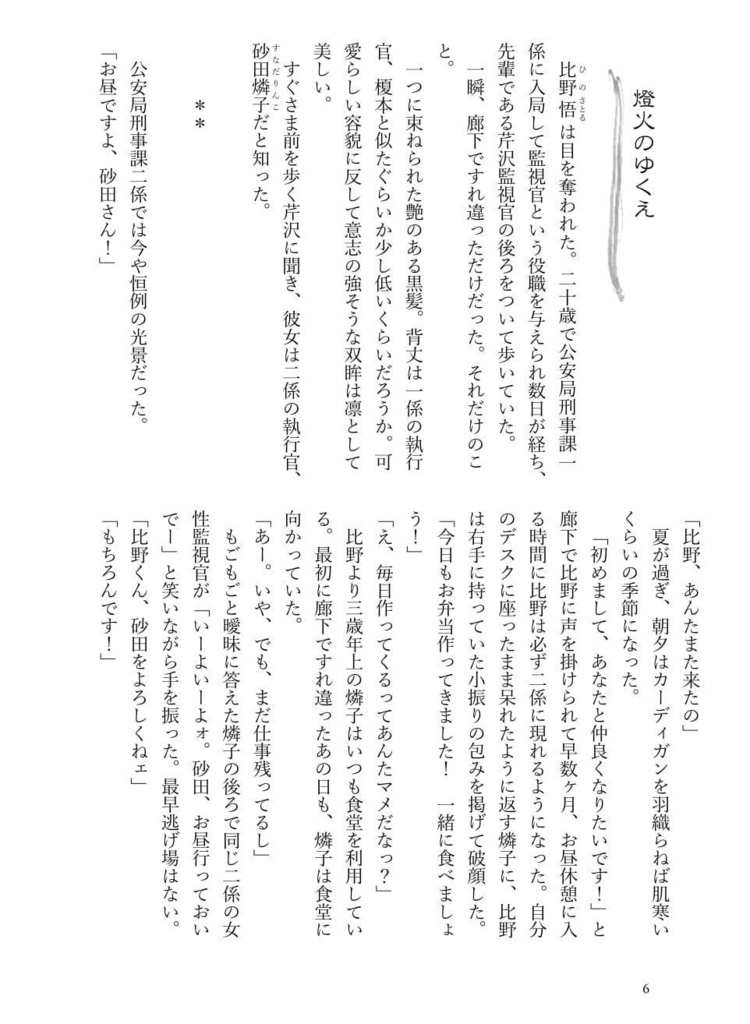 燈火のゆくえ
比野悟は目を奪われた。二十歳で公安局刑事課一
ひのさとる
係に入局して監視官という役職を与えられ数日が経ち、
先輩である芹沢監視官の後ろをついて歩いていた。
一瞬、廊下ですれ違っただけだった。それだけのこ
と。
一つに束ねられた艶のある黒髪。背丈は一係の執行
官、榎本と似たぐらいか少し低いくらいだろうか。可
愛らしい容貌に反して意志の強そうな双眸は凛として
美しい。
すぐさま前を歩く芹沢に聞き、彼女は二係の執行官、
砂田燐子だと知った。
すなだりんこ
＊＊
公安局刑事課二係では今や恒例の光景だった。
「お昼ですよ、砂田さん！」
「比野、あんたまた来たの」
夏が過ぎ、朝夕はカーディガンを羽織らねば肌寒い
くらいの季節になった。
「初めまして、あなたと仲良くなりたいです！」と
廊下で比野に声を掛けられて早数ヶ月、お昼休憩に入
る時間に比野は必ず二係に現れるようになった。自分
のデスクに座ったまま呆れたように返す燐子に、比野
は右手に持っていた小振りの包みを掲げて破顔した。
「今日もお弁当作ってきました！　一緒に食べましょ
う！」
「え、毎日作ってくるってあんたマメだなっ？」
比野より三歳年上の燐子はいつも食堂を利用してい
る。最初に廊下ですれ違ったあの日も、燐子は食堂に
向かっていた。
「あー。いや、でも、まだ仕事残ってるし」
もごもごと曖昧に答えた燐子の後ろで同じ二係の女
性監視官が「いーよいーよォ。砂田、お昼行っておい
でー」と笑いながら手を振った。最早逃げ場はない。
「比野くん、砂田をよろしくねェ」
「もちろんです！」
6